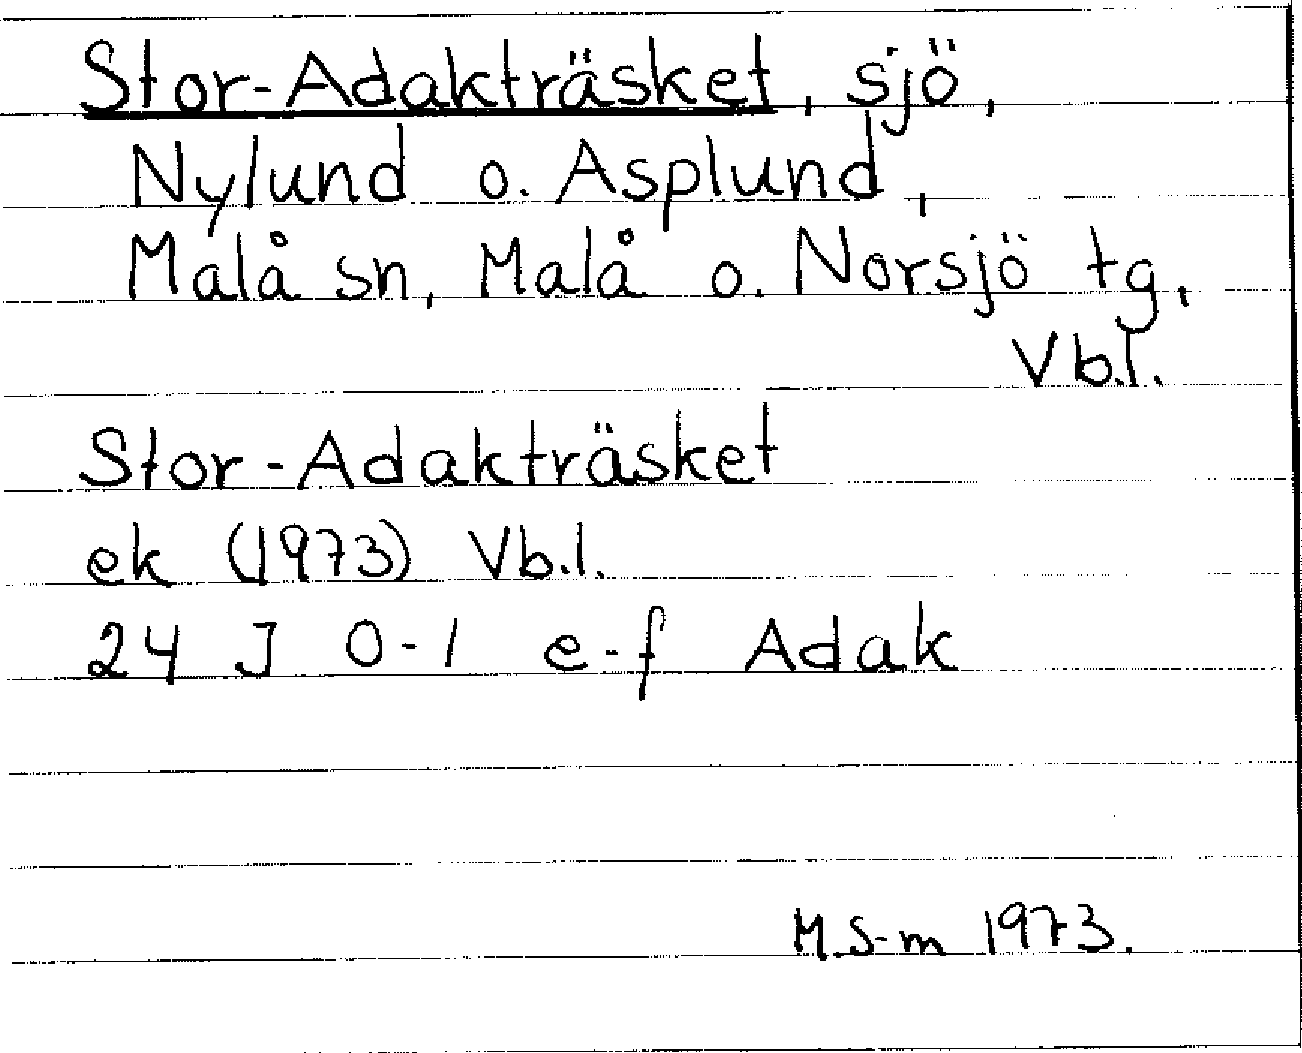 Stor-Adakträsket, sjö,
Nylund o. Asplund,
Malå sn, Malå o. Norsjö tg,
Vb.l.
Stor-Adakträsket
ek (1973) Vb.l.
24 J 0-1 e-f Adak
M.S-m 1973.